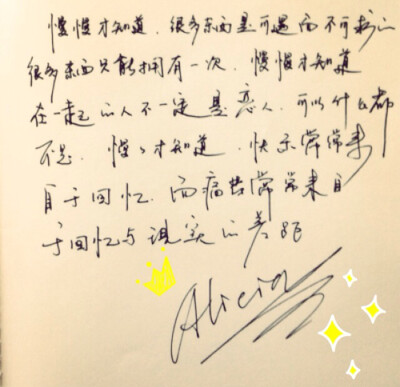 慢慢才知道.很多东西是可遇而不可求的
很多东西只能拥有一次.慢慢才知道
在一起的人不一定是恋人.可以什么都
不是.慢々才知道.快乐常常来
自于回忆.而痛苦常常来自
于回忆与现实的差距
Alicia